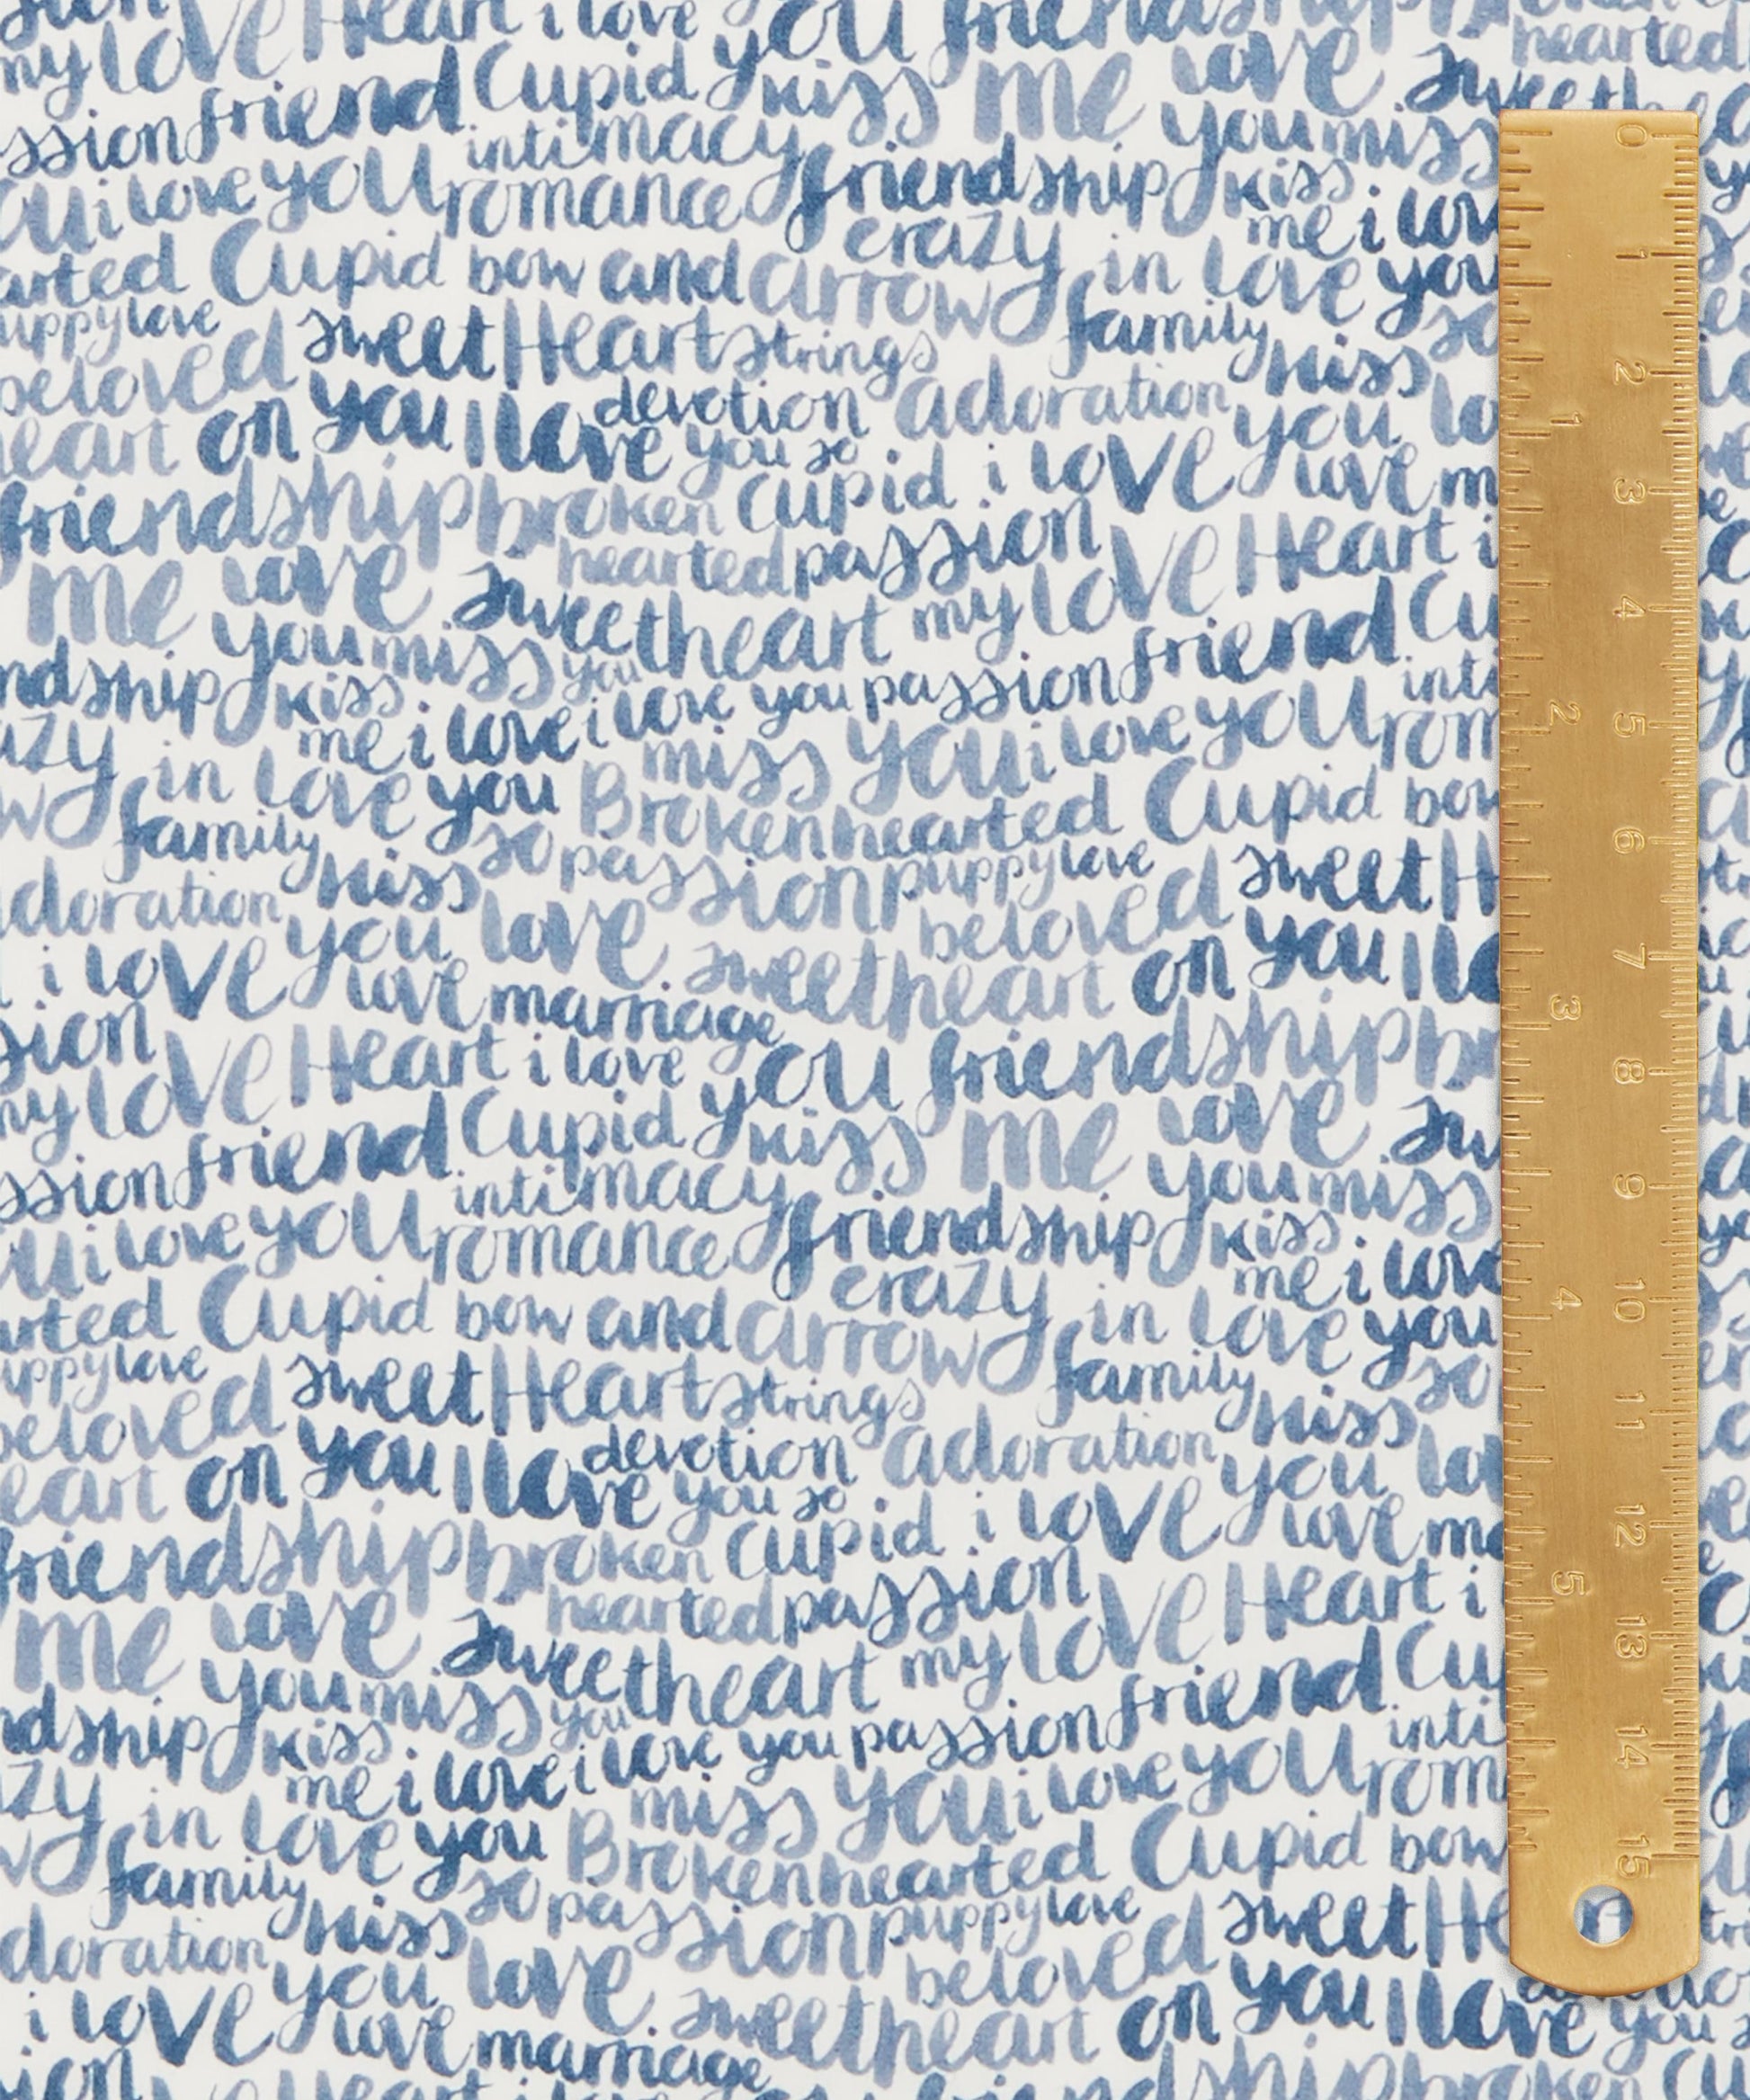 my love Heart i love you friendship
hearted
my love friend Cupid kiss me love sweethea
ssion friend intimacy you miss
i love you romance friendship kiss
me i love
crazy
arted Cupid bow and arrow in love you
uppy love sweet Heart strings family so
beloved kiss
devotion adoration
heart on you I love you so you lo
Cupid i love love m
friendship broken
hearted passion love Heart i
me love sweetheart my friend Cu
you miss you
ndship kiss i love you passion inti
me i love miss you i love you rom
azy in love you Broken hearted Cupid bow
w family so passion puppy love sweet H
adoration kiss beloved
you love sweetheart on you I lo
i love love marriage
sion love Heart i love you friendship br
my love friend Cupid kiss me love sw
ssion intimacy you miss
i love you romance friendship kiss
me i love
crazy
arted Cupid bow and arrow in love you
uppy love sweet Heart strings family so
beloved kiss
devotion adoration
eart on you I love you so you lo
Cupid i love love ma
friendship broken
hearted passion love Heart i
me love sweetheart my friend Cu
you miss you
ndship kiss i love you passion inti
me i love miss you i love you rom
zy in love you Broken hearted Cupid bow
w family so passion puppy love sweet He
doration kiss beloved
you love sweetheart on you I love you
i love love marriage
ion Heart i love friendship broken Cu
0 1 2 3 4 5 6 7 8 9 10 11 12 13 14 15
1 2 3 4 5